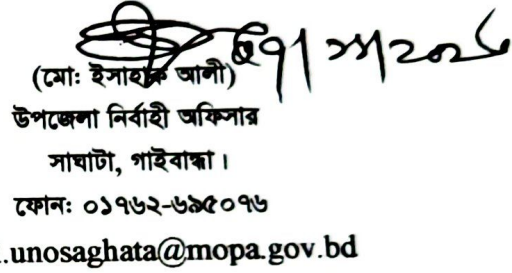 (মোঃ ইসাহাক আলী)
উপজেলা নির্বাহী অফিসার
সাঘাটা, গাইবান্ধা।
ফোন: ০১৭৬২-৬৯৫০৭৬
.unosaghata@mopa.gov.bd